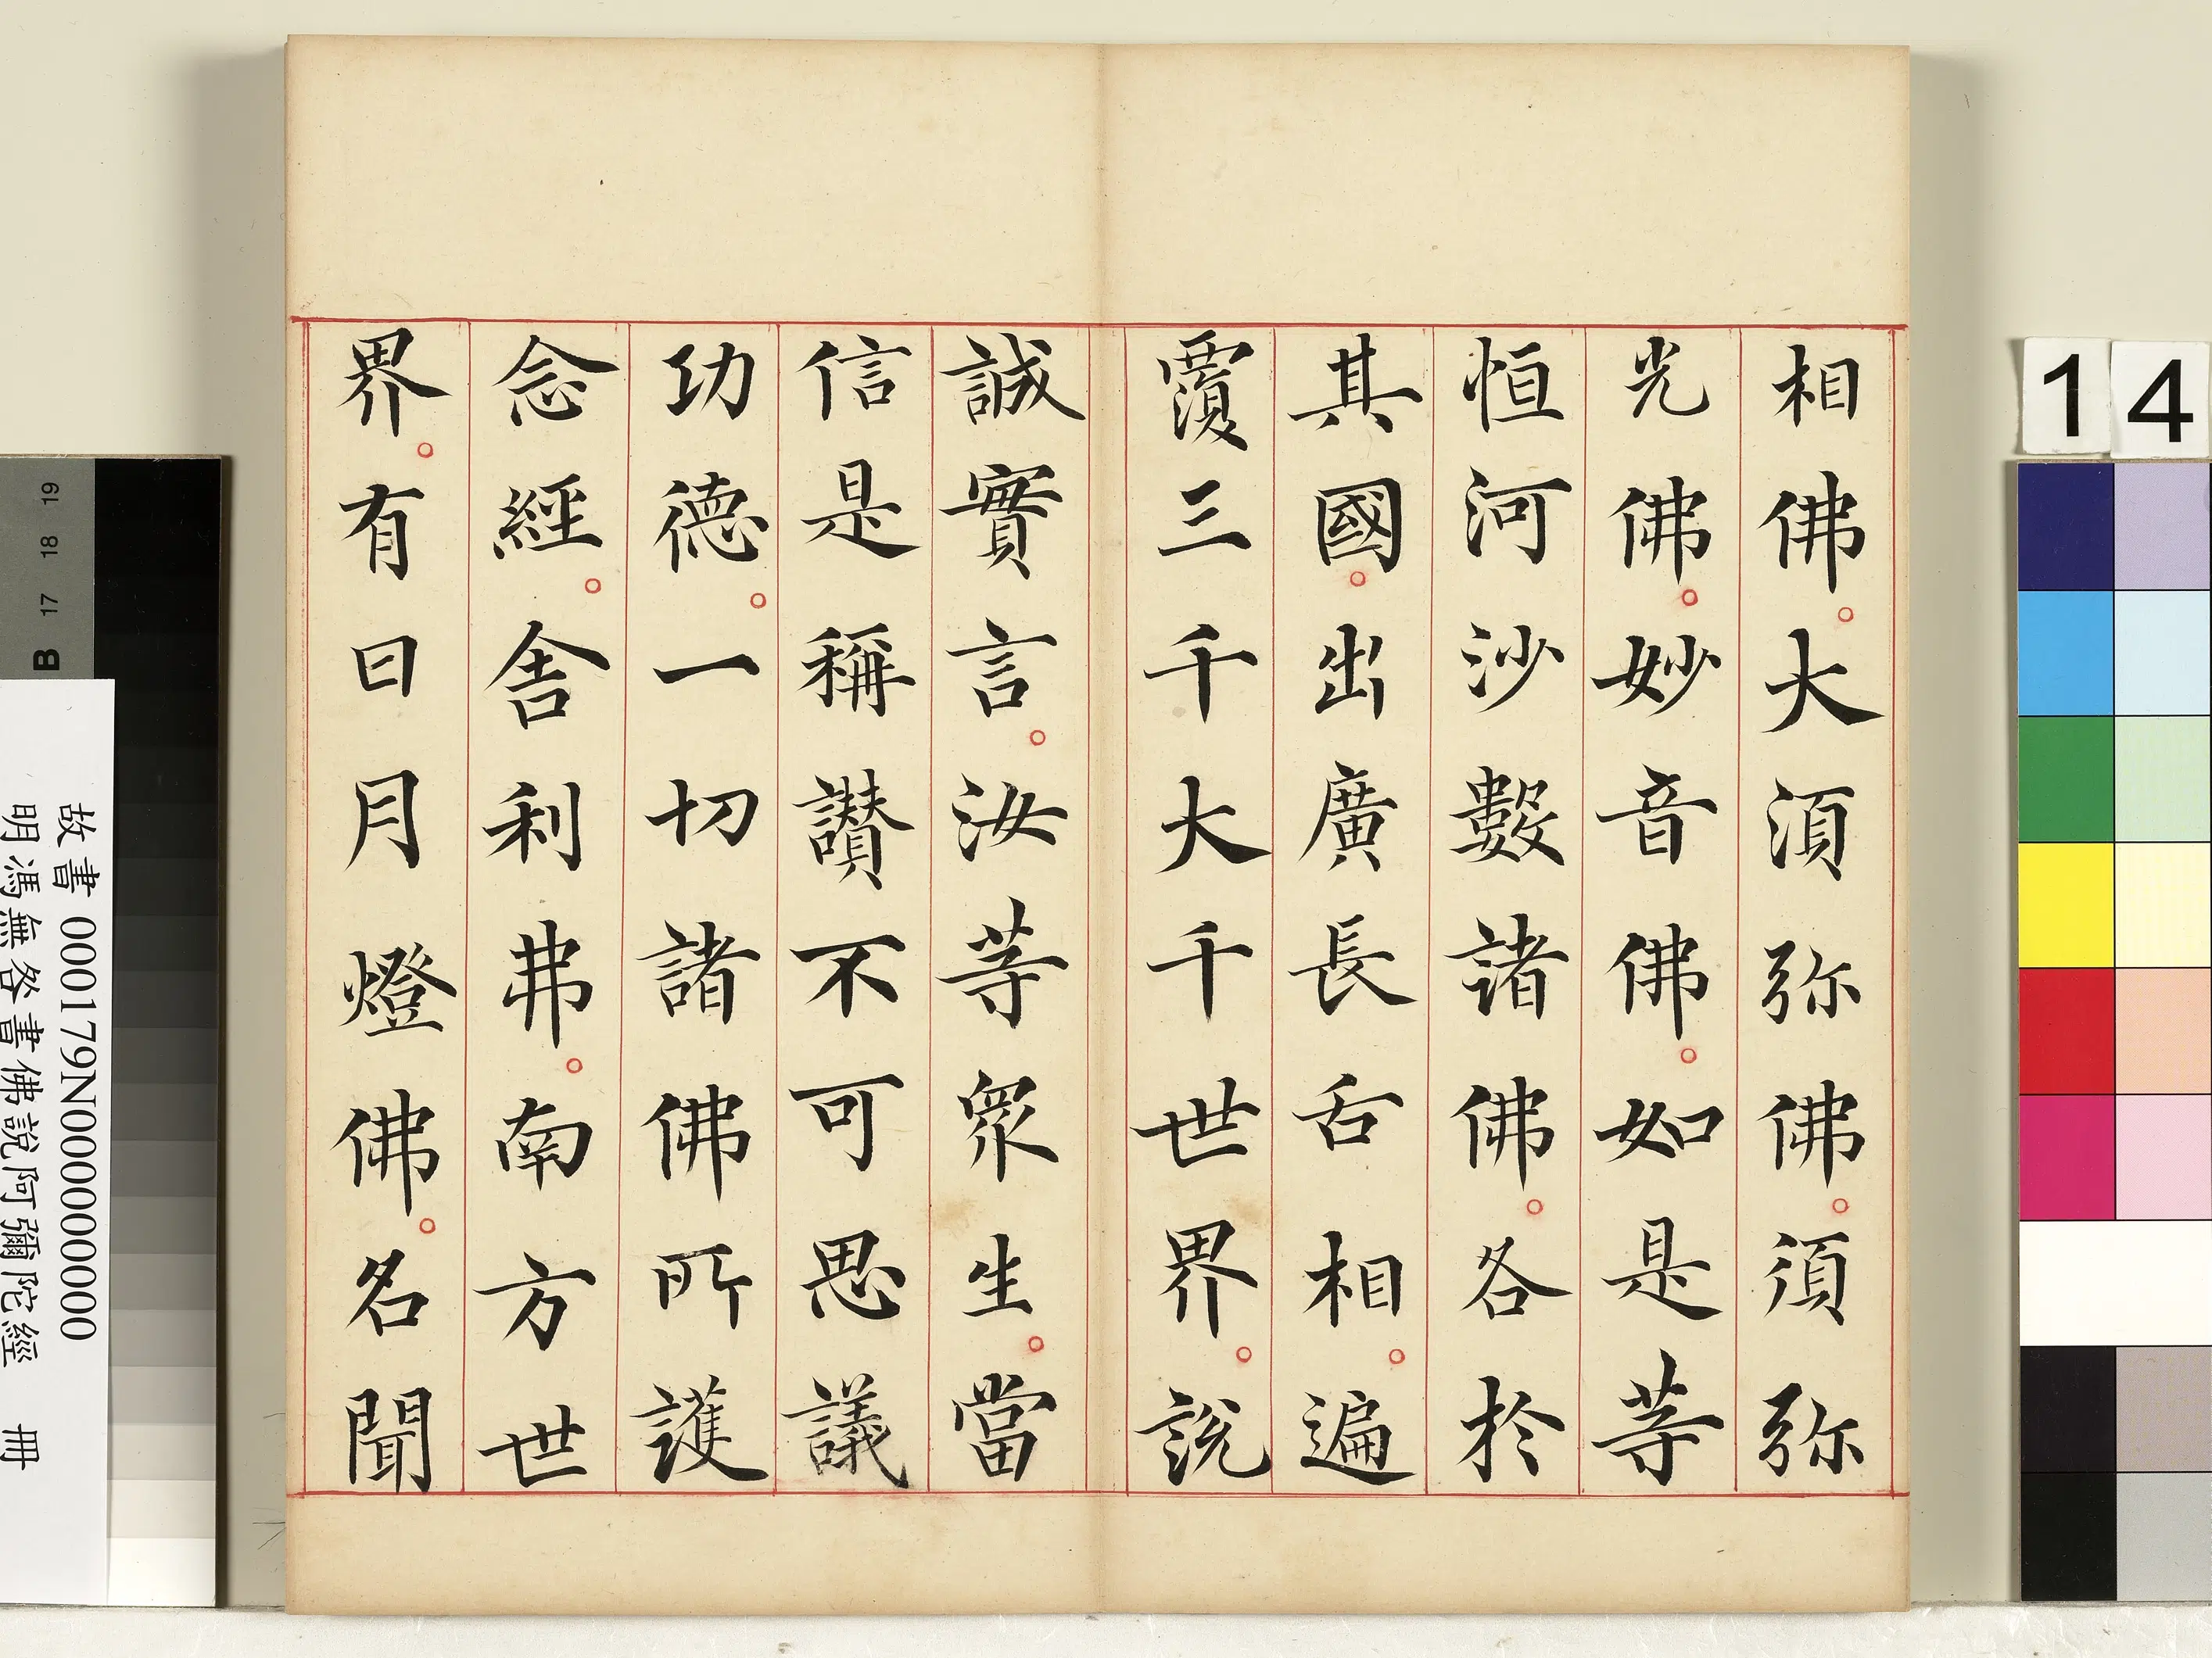 相佛。大湏弥佛。湏弥
光佛。妙音佛。如是等
恒河沙數諸佛。各於
其國。出廣長舌相。遍
覆三千大千世界。說
誠實言。汝等衆生。當
信是稱讃不可思議
功德。一切諸佛所護
念經。舎利弗。南方世
界。有日月燈佛。名聞
14
故書 000179N000000000
明馮無咎書佛說阿彌陀經 冊
B 17 18 19